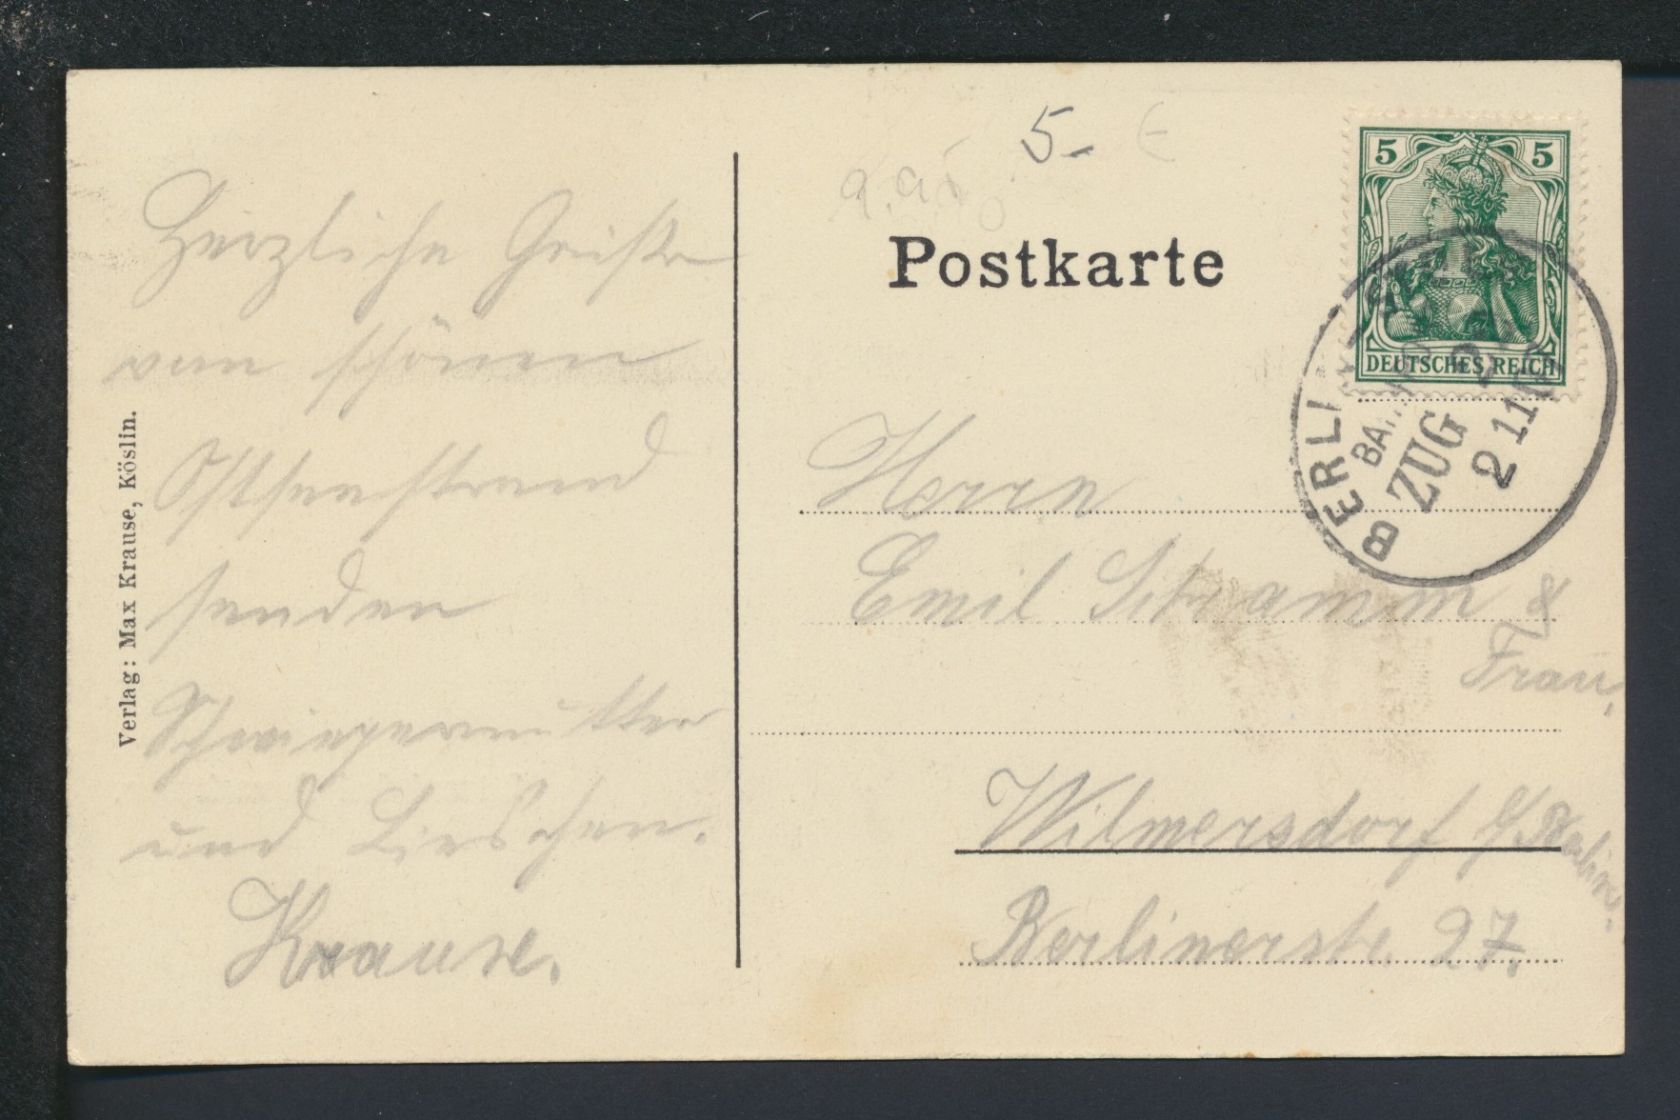 Herzliche Grüße
vom schönen
Ostseestrand
senden
Schwiegermutter
und Lieschen.
Krause.
Verlag: Max Krause, Köslin.
5-
€
Postkarte
5 5
DEUTSCHES REICH
BERLI
BA
ZUG
2 11
Herrn
Emil Schramm &
Frau,
Wilmersdorf b/Berlin.
Berlinerstr. 27.